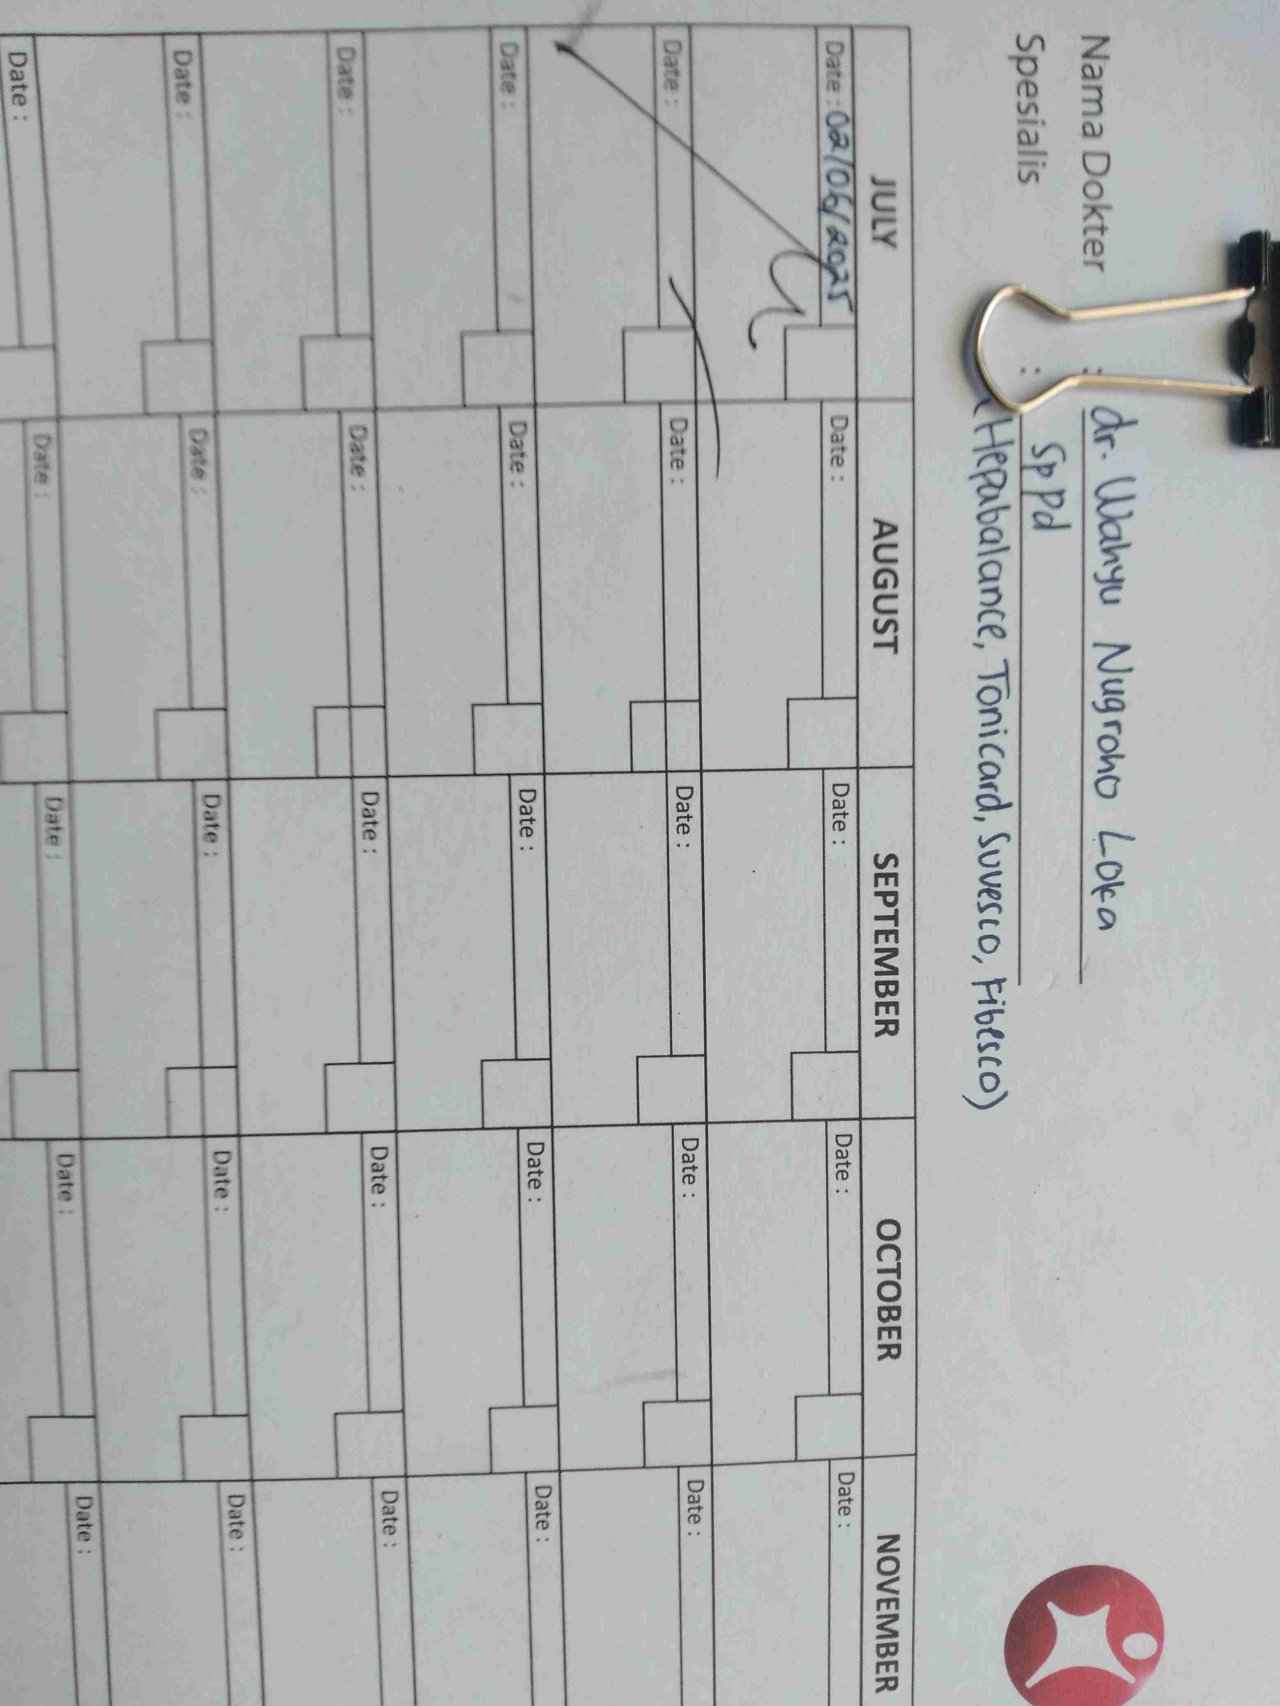 Nama Dokter : dr. Wahyu Nugroho Loka
Spesialis : Sp Pd
(Hepabalance, Tonicard, Suvesco, Fibesco)
JULY AUGUST SEPTEMBER OCTOBER NOVEMBER
Date : 02/06/2025 Date : Date : Date : Date :
Date : Date : Date : Date : Date :
Date : Date : Date : Date : Date :
Date : Date : Date : Date : Date :
Date : Date : Date : Date : Date :
Date : Date : Date : Date : Date :